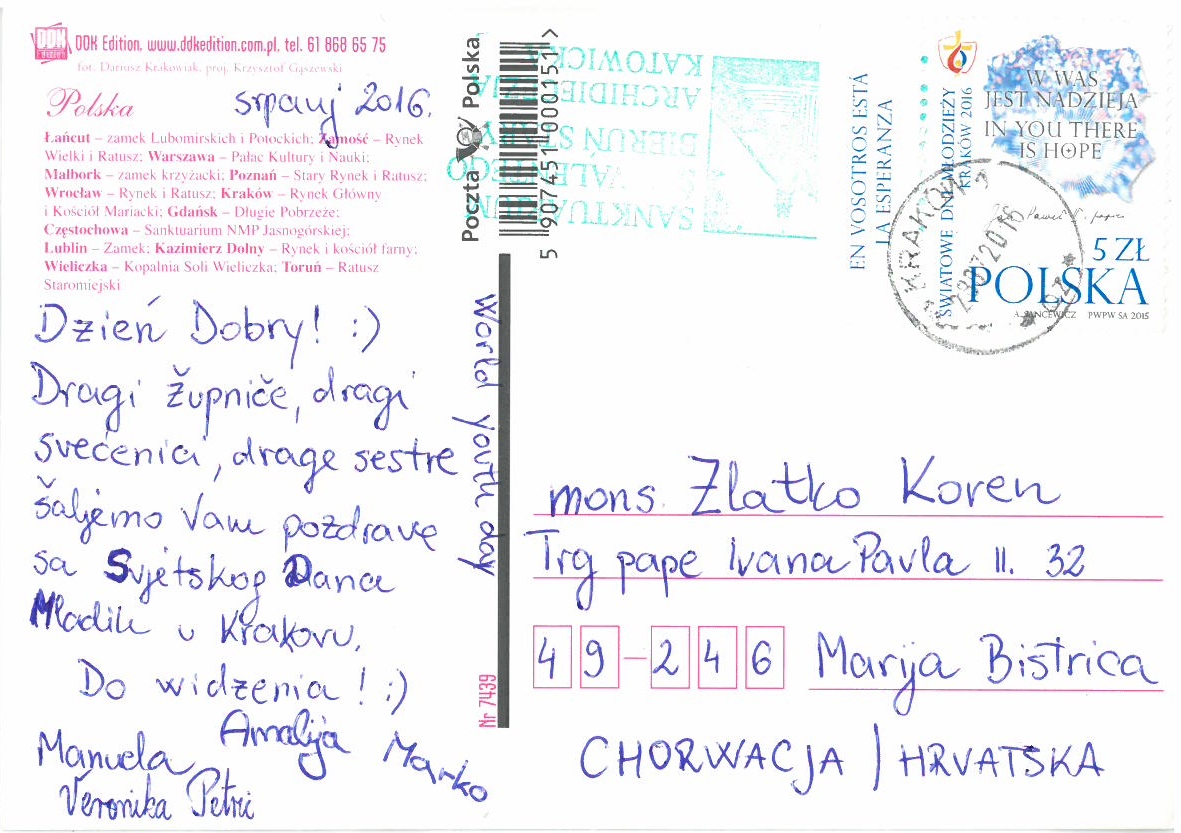 DDK Edition, www.ddkedition.com.pl, tel. 61 868 65 75
fot. Dariusz Krakowiak, proj. Krzysztof Gąszewski
Polska
srpanj 2016.
Łańcut – zamek Lubomirskich i Potockich; Zamość – Rynek
Wielki i Ratusz; Warszawa – Pałac Kultury i Nauki;
Malbork – zamek krzyżacki; Poznań – Stary Rynek i Ratusz;
Wrocław – Rynek i Ratusz; Kraków – Rynek Główny
i Kościół Mariacki; Gdańsk – Długie Pobrzeże;
Częstochowa – Sanktuarium NMP Jasnogórskiej;
Lublin – Zamek; Kazimierz Dolny – Rynek i kościół farny;
Wieliczka – Kopalnia Soli Wieliczka; Toruń – Ratusz
Staromiejski
Dzień Dobry! :)
Dragi župniče, dragi
svećenici, drage sestre
šaljemo Vam pozdrave
sa Svjetskog Dana
Mladih u Krakovu.
Do widzenia! :)
Amalija
Manuela
Marko
Veronika Petri
World youth day
Nr 7439
Poczta Polska
5 907451 000151 >
SANKTUARIUM
WALENTEGO
BIERUŃ STARY
ARCHIDIECEZJA
KATOWICKA
EN VOSOTROS ESTÁ
LA ESPERANZA
ŚWIATOWE DNI MŁODZIEŻY
KRAKÓW 2016
W WAS
JEST NADZIEJA
IN YOU THERE
IS HOPE
5 ZŁ
POLSKA
PWPW SA 2015
KRAKÓW
mons. Zlatko Koren
Trg pape Ivana Pavla II. 32
49-246 Marija Bistrica
CHORWACJA / HRVATSKA